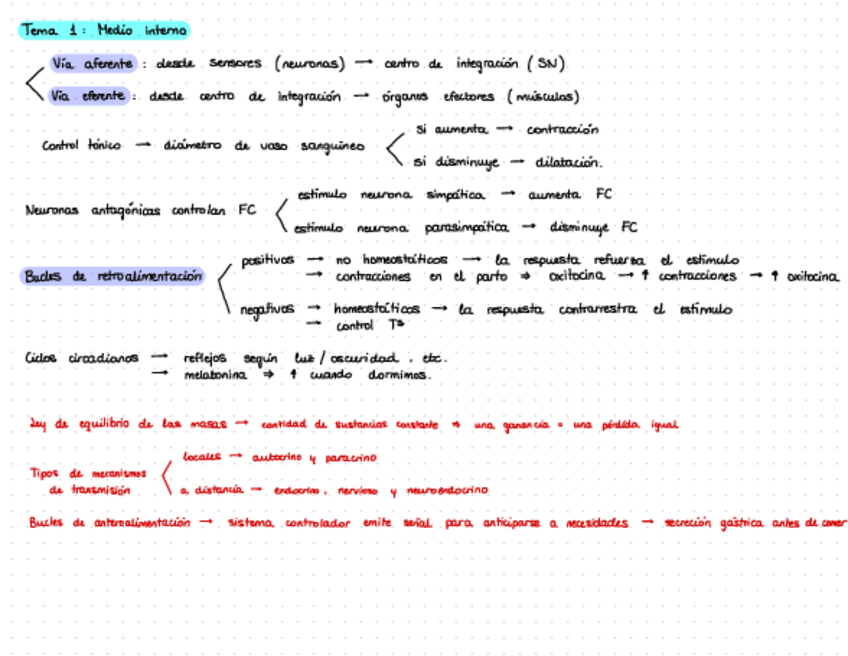 Tema 1: Medio interno
Vía aferente: desde sensores (neuronas) → centro de integración (SN)
Vía eferente: desde centro de integración → órganos efectores (músculos)
Control tónico → diámetro de vaso sanguíneo
si aumenta → contracción
si disminuye → dilatación.
Neuronas antagónicas controlan FC
estímulo neurona simpática → aumenta FC
estímulo neurona parasimpática → disminuye FC
Bucles de retroalimentación
positivos → no homeostáticos → la respuesta refuerza el estímulo
→ contracciones en el parto ⇒ oxitocina → ↑ contracciones → ↑ oxitocina
negativos → homeostáticos → la respuesta contrarrestra el estímulo
→ control Tª
Ciclos circadianos → reflejos según luz/oscuridad, etc.
→ melatonina ⇒ ↑ cuando dormimos.
Ley de equilibrio de las masas → cantidad de sustancias constante ⇒ una ganancia = una pérdida igual
Tipos de mecanismos
de transmisión
locales → autocrino y paracrino
a distancia → endocrino, nervioso y neuroendocrino
Bucles de anteroalimentación → sistema controlador emite señal para anticiparse a necesidades → secreción gástrica antes de comer